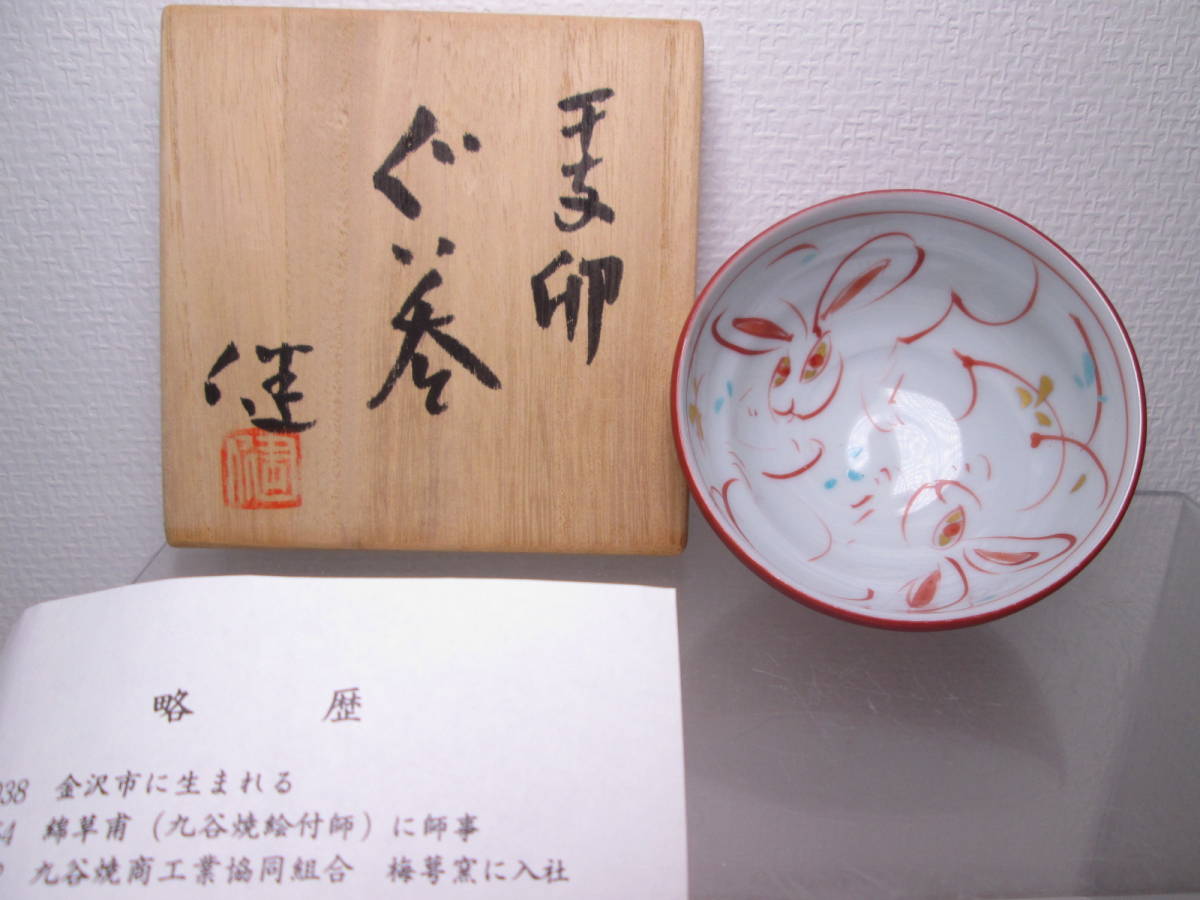 干支 卯
ぐい呑
健
健
略 歴
938 金沢市に生まれる
54 綿草甫（九谷焼絵付師）に師事
九谷焼商工業協同組合 梅萼窯に入社